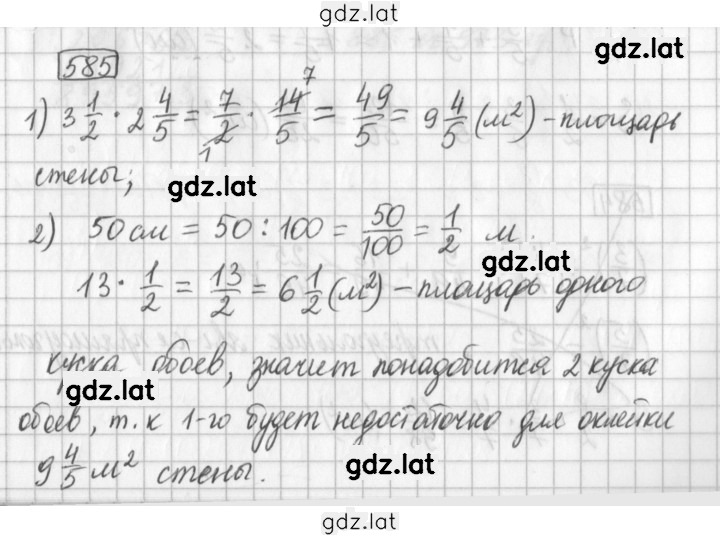 gdz.lat
585
gdz.lat
1) 3 1/2 · 2 4/5 = 7/2 · 14/5 = 49/5 = 9 4/5 (м²) – площадь
1 7
стены;
gdz.lat
2) 50 см = 50 : 100 = 50/100 = 1/2 м.
gdz.lat
13 · 1/2 = 13/2 = 6 1/2 (м²) – площадь одного
куска обоев, значит понадобится 2 куска
gdz.lat
обоев, т.к 1-го будет недостаточно для оклейки
9 4/5 м² стены.
gdz.lat
gdz.lat